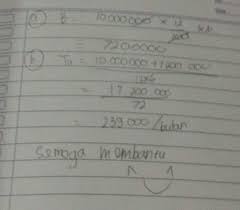 (a) B = 10.000.000 × 12
= 7200000
(b) Tu = 10.000.000 + 7.200.000
= 17.200.000
72
= 239.000/bulan
Semoga membantu